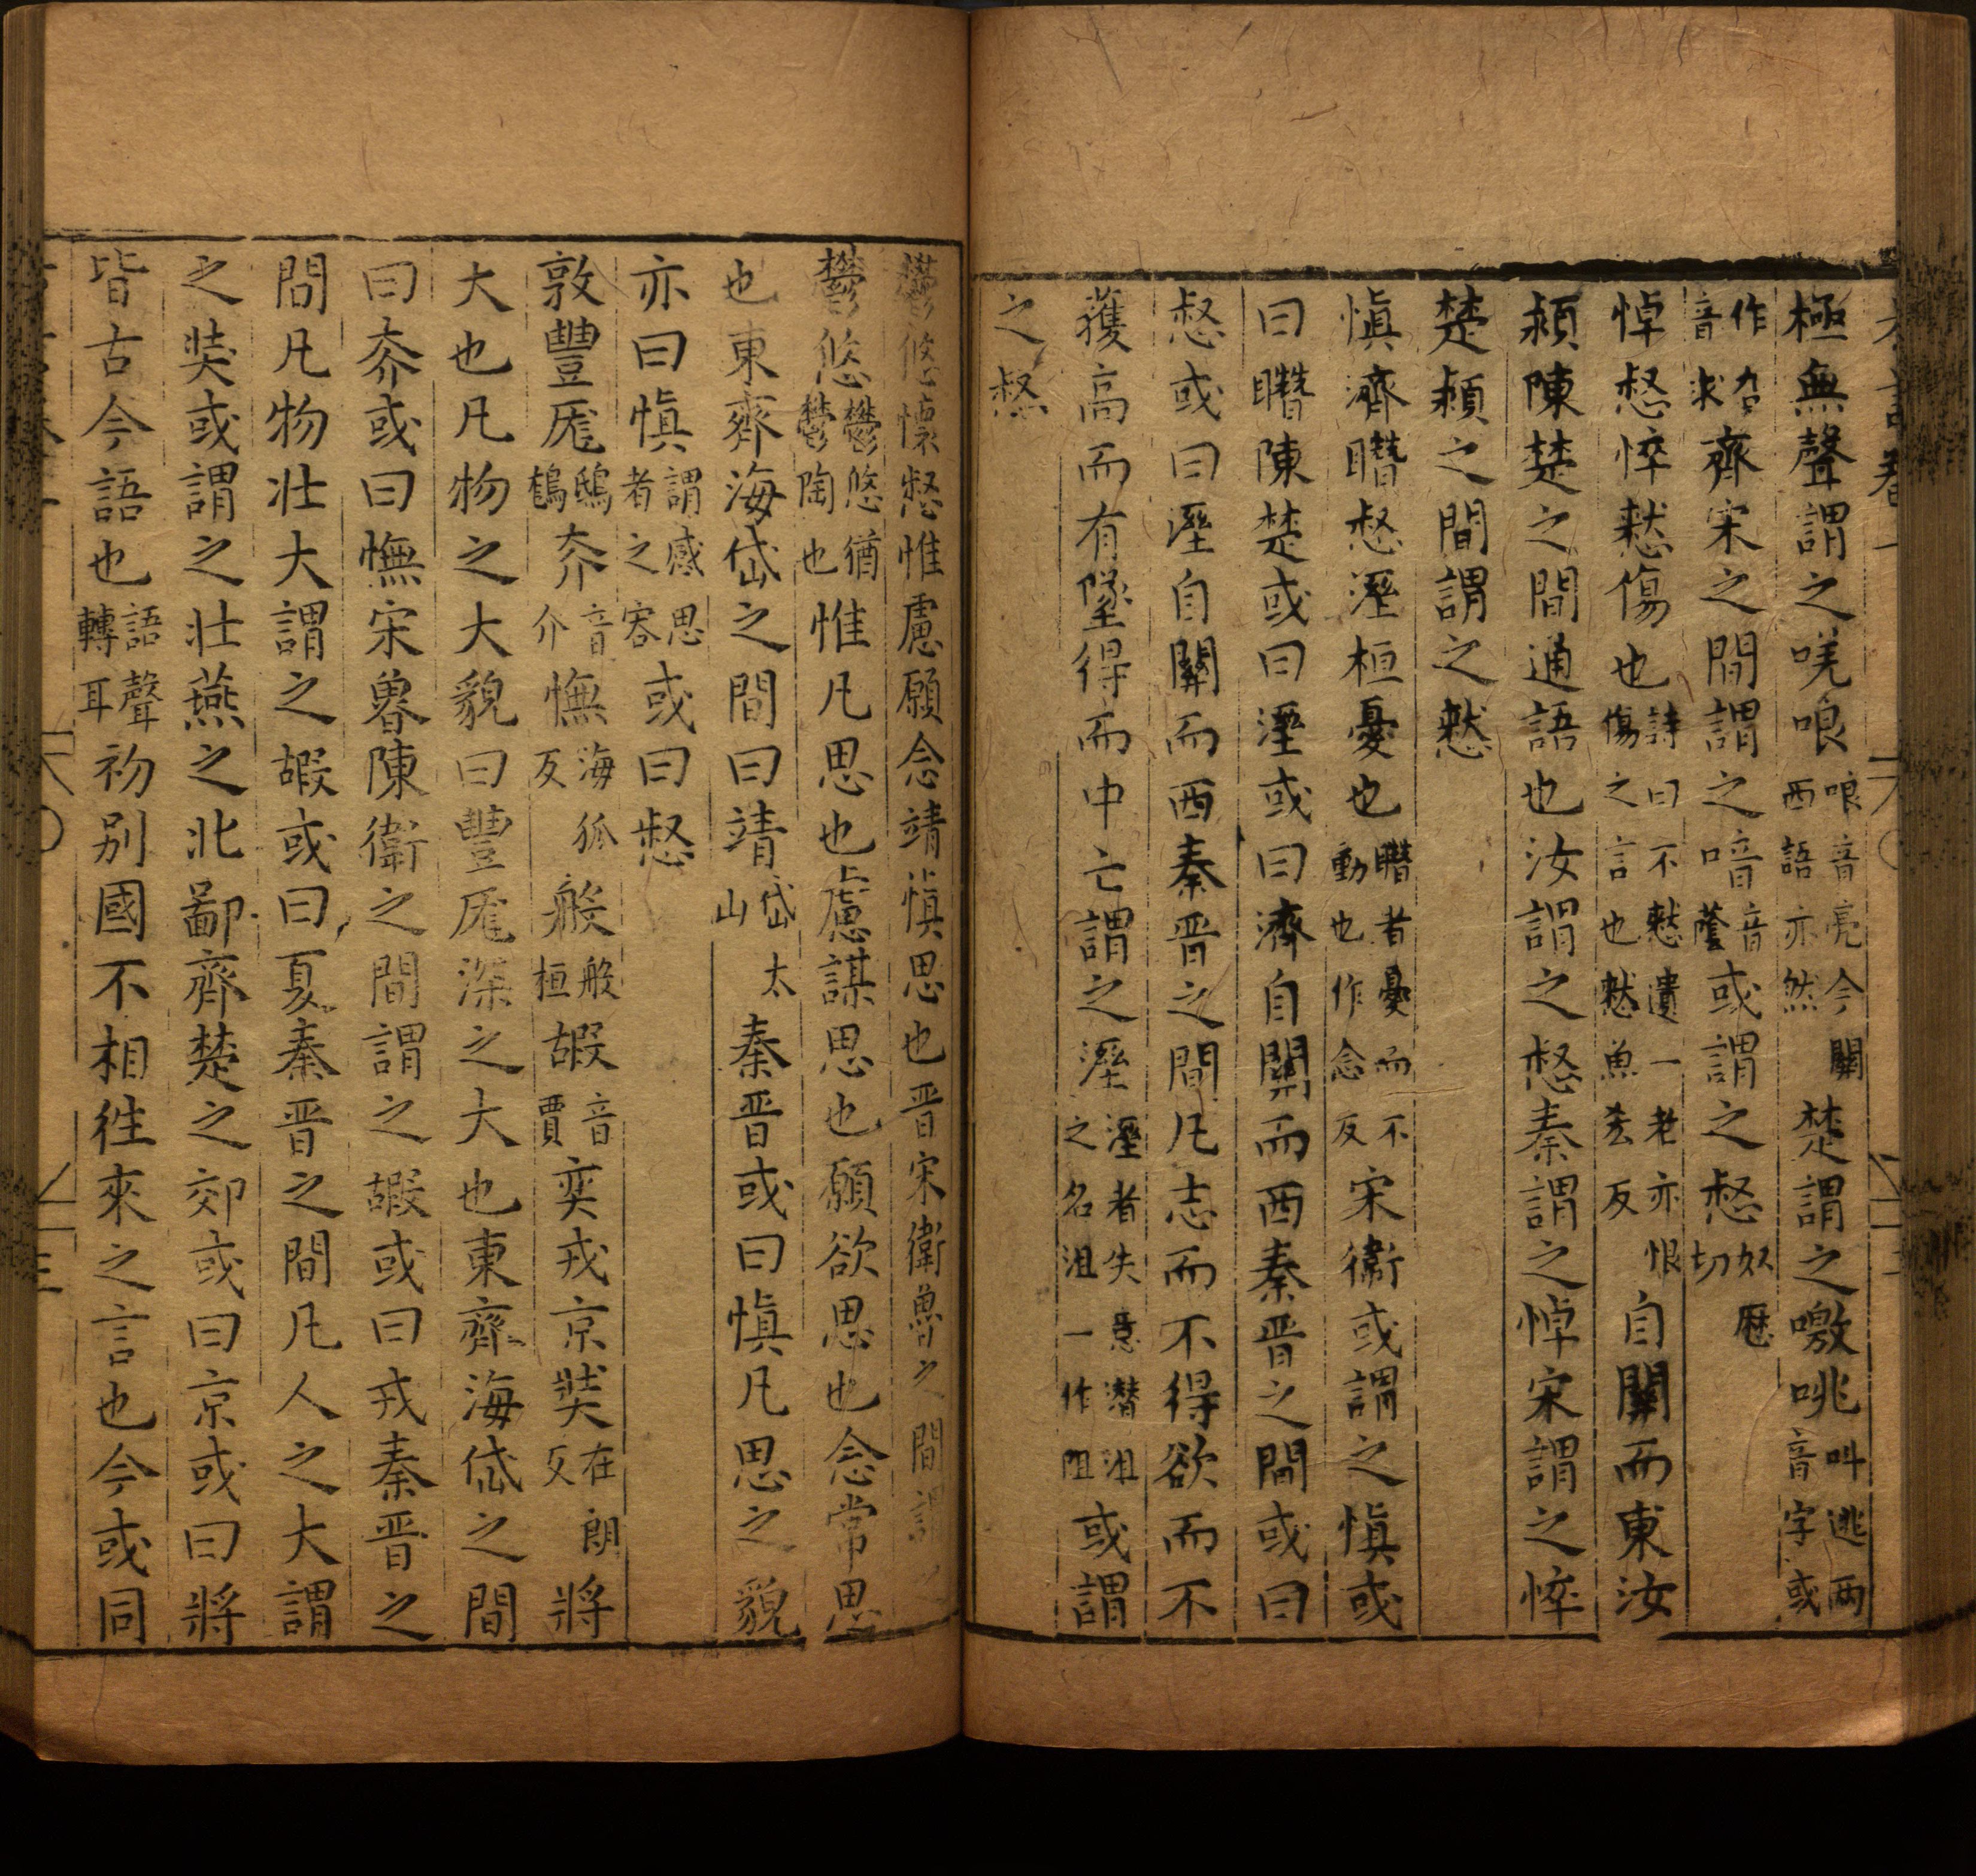 極無聲謂之唴哴哴音亮今關西語亦然楚謂之噭咷叫逃兩音字或
作㕦音求齊宋之間謂之喑音蔭或謂之惄奴歷切
悼惄悴憖傷也詩曰不憖遺一老亦恨傷之言也憖魚吝反自關而東汝
潁陳楚之間通語也汝謂之惄秦謂之悼宋謂之悴
楚潁之間謂之憖
慎濟㬱惄溼桓憂也㬱者憂而不動也作念反宋衛或謂之慎或
曰㬱陳楚或曰溼或曰濟自關而西秦晋之間或曰
惄或曰溼自關而西秦晋之間凡志而不得欲而不
獲高而有墜得而中亡謂之溼溼者失意潛沮之名沮一作阻或謂
之惄
鬱悠懷惄惟慮願念靖慎思也晋宋衛魯之間謂之
鬱悠鬱悠猶鬱陶也惟凡思也慮謀思也願欲思也念常思
也東齊海岱之間曰靖岱太山秦晋或曰慎凡思之貌
亦曰慎謂感思者之容或曰惄
敦豐厖鴟鶴夼音介憮海狐反般般桓嘏音賈奕戎京奘在朗反將
大也凡物之大貌曰豐厖深之大也東齊海岱之間
曰夼或曰憮宋魯陳衛之間謂之嘏或曰戎秦晋之
間凡物壯大謂之嘏或曰夏秦晋之間凡人之大謂
之奘或謂之壯燕之北鄙齊楚之郊或曰京或曰將
皆古今語也語聲轉耳初別國不相徃來之言也今或同